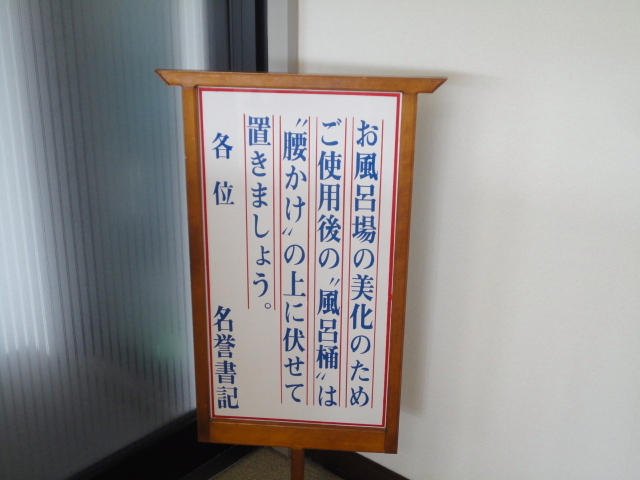 お風呂場の美化のため
ご使用後の〝風呂桶〟は
〝腰かけ〟の上に伏せて
置きましょう。
各位
名誉書記